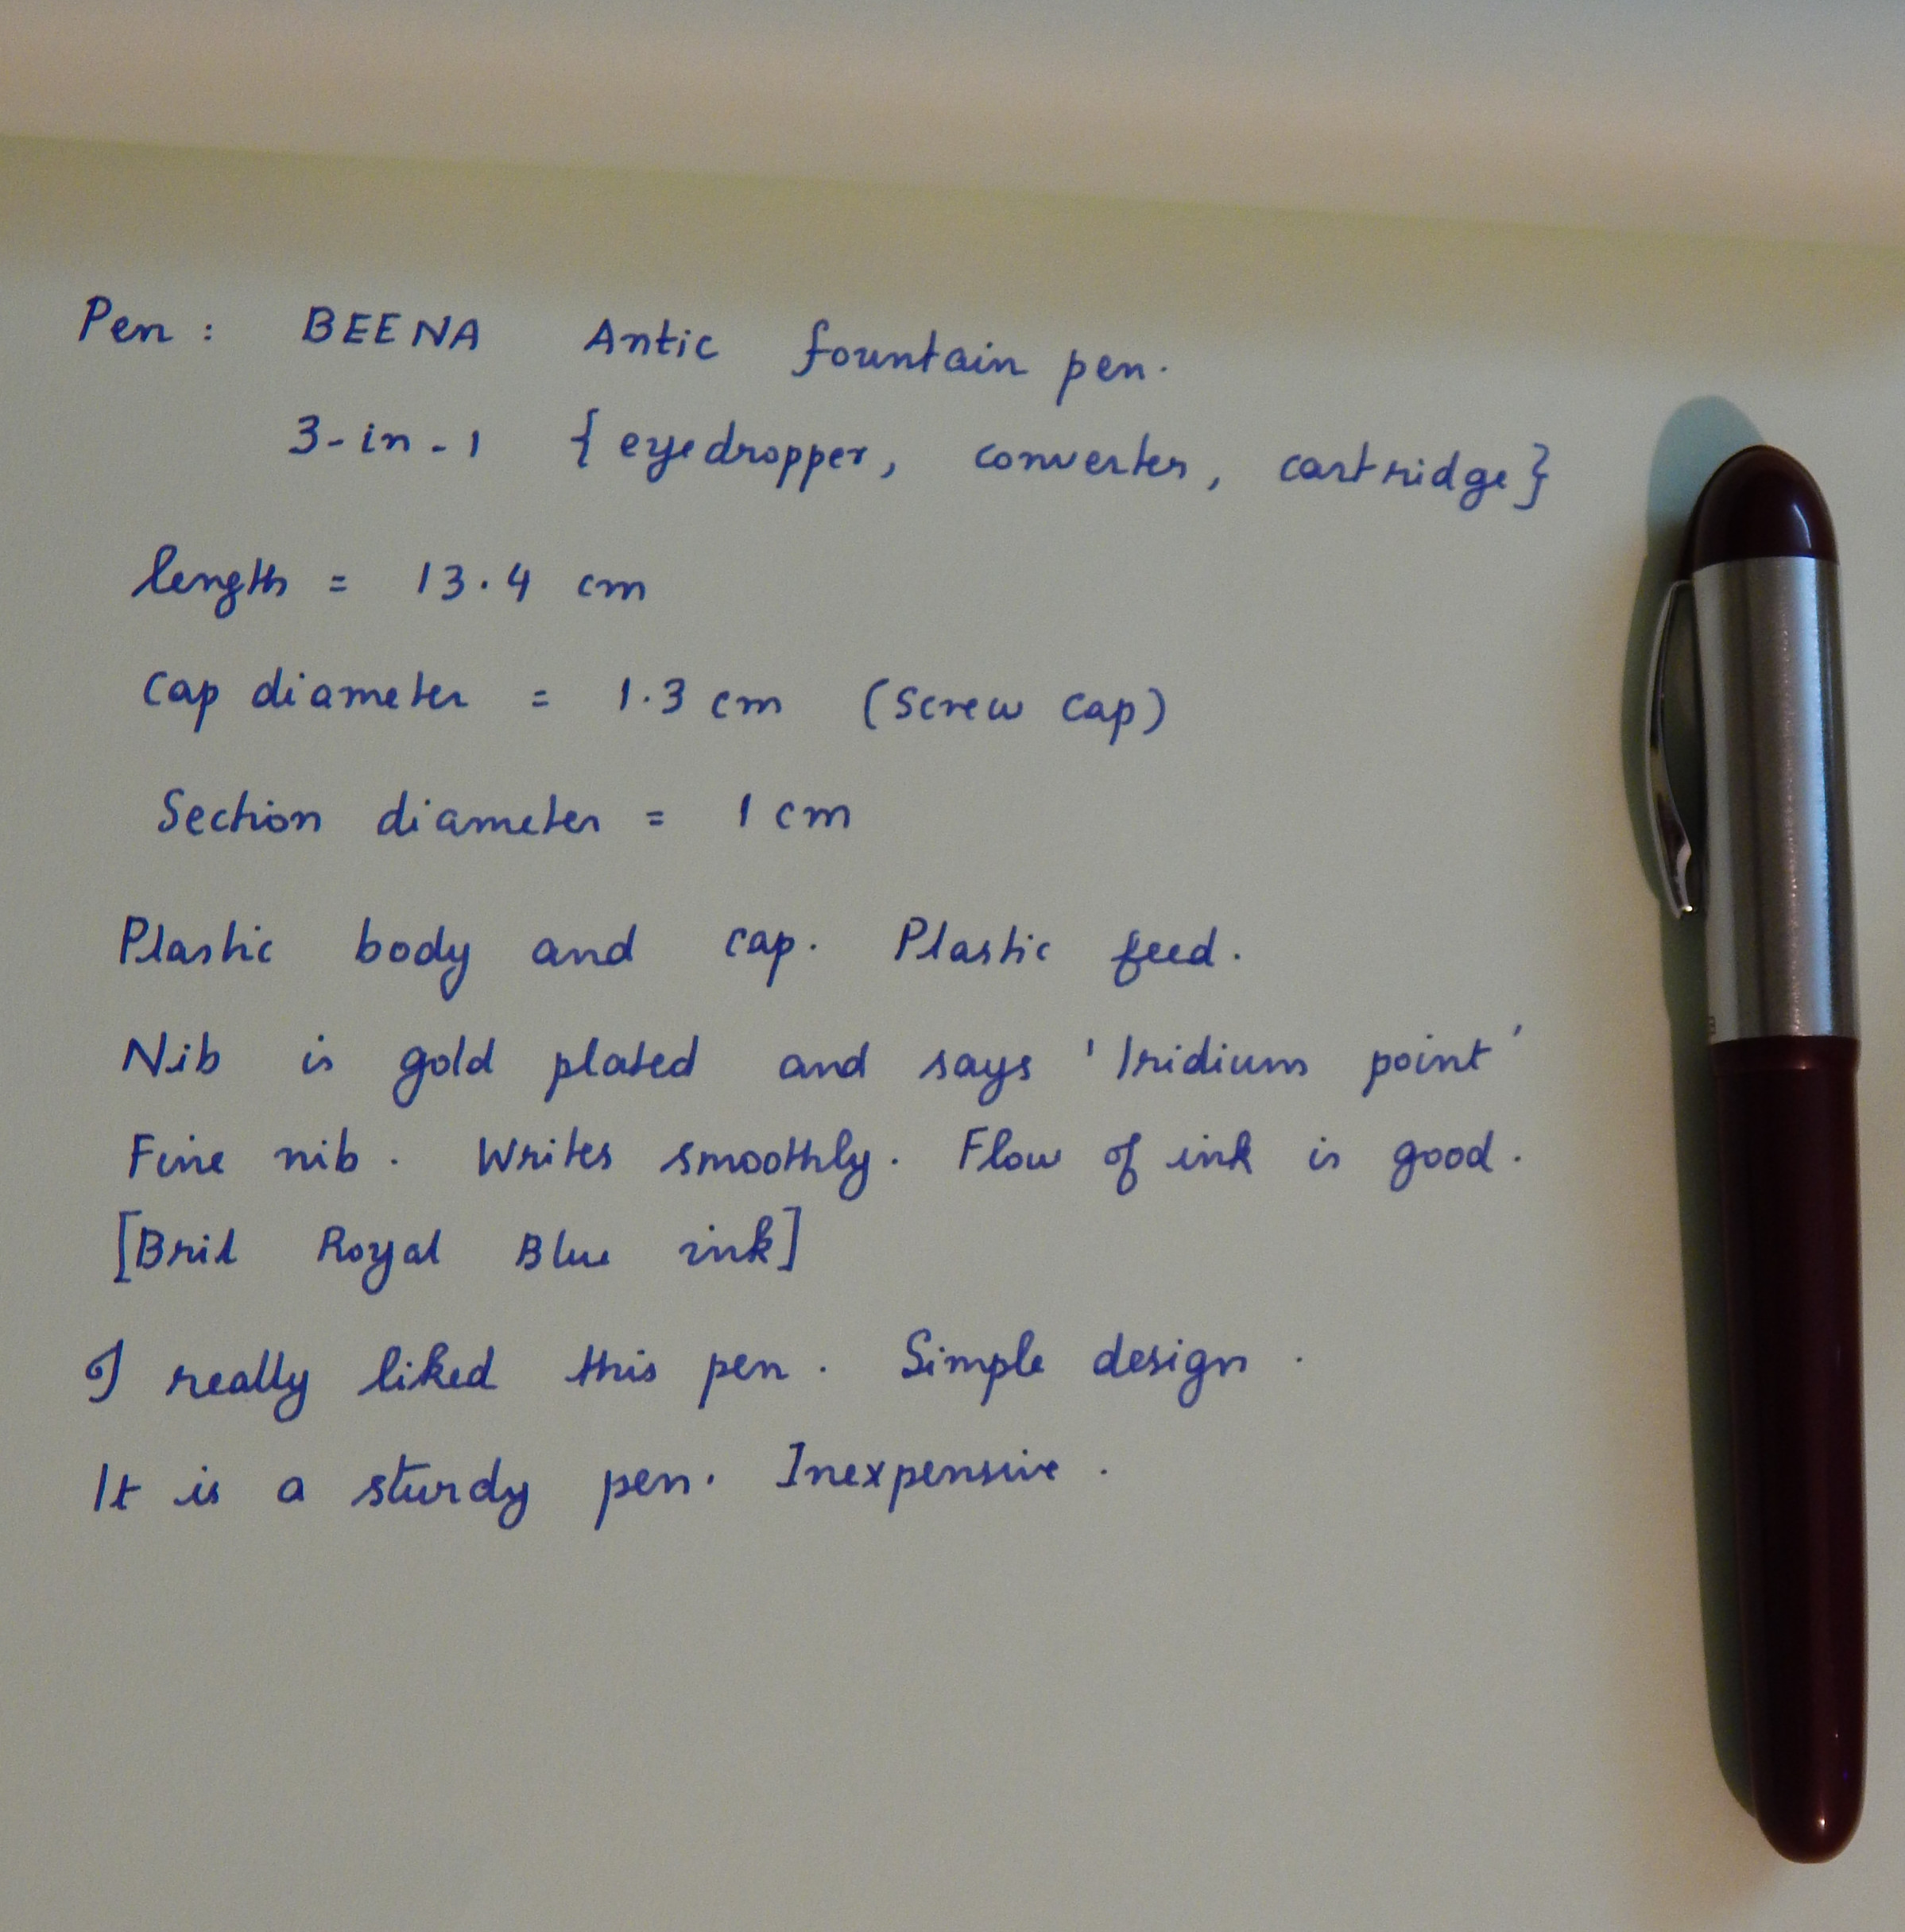 Pen : BEENA Antic fountain pen.
3-in-1 {eyedropper, converter, cartridge}
length = 13.4 cm
Cap diameter = 1.3 cm (Screw Cap)
Section diameter = 1 cm
Plastic body and cap. Plastic feed.
Nib is gold plated and says 'Iridium point'
Fine nib. Writes smoothly. Flow of ink is good.
[Bril Royal Blue ink]
I really liked this pen. Simple design.
It is a sturdy pen. Inexpensive.